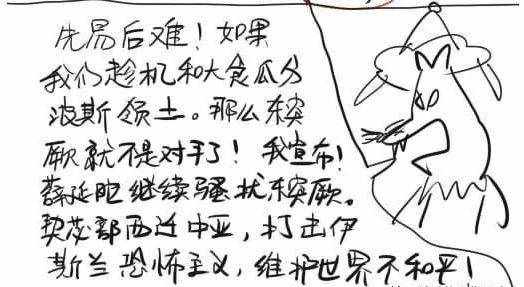 先易后难！如果
我们趁机和大食瓜分
波斯领土。那么东突
厥就不是对手了！我宣布！
薛延陀继续骚扰东突厥。
契苾部西迁中亚，打击伊
斯兰恐怖主义，维护世界不和平！